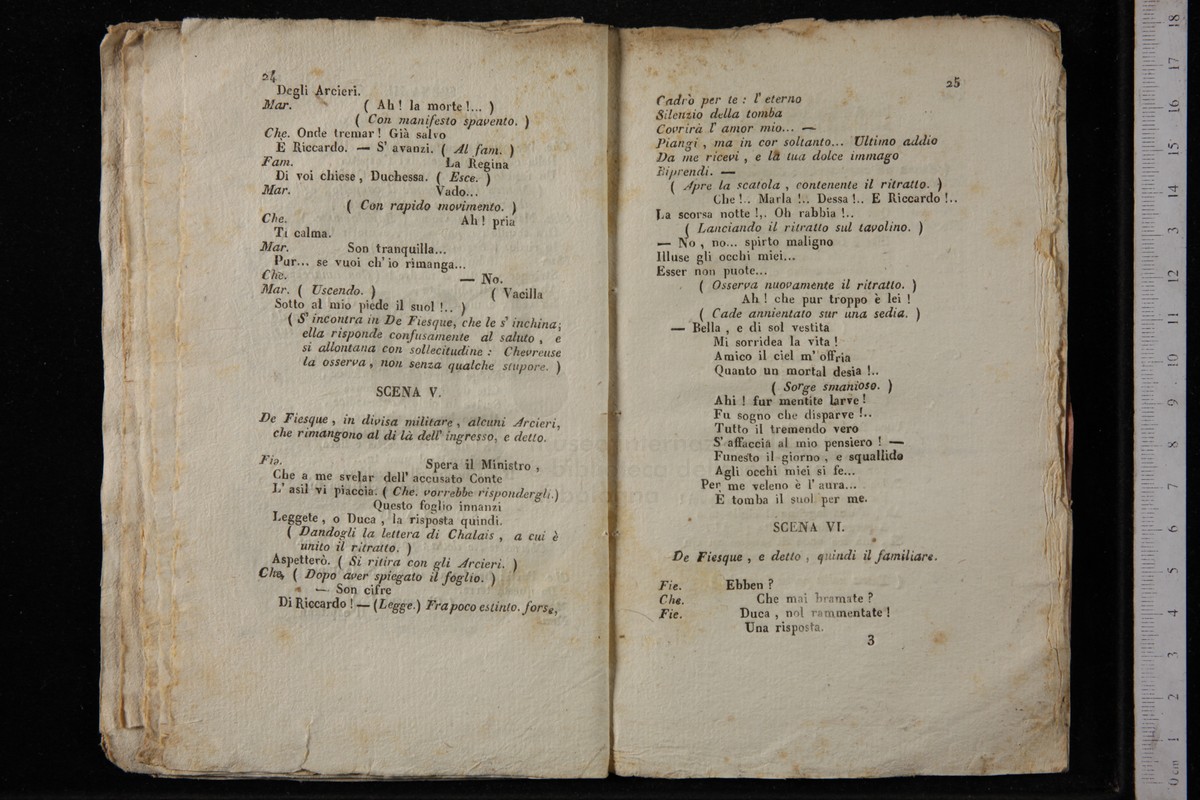 24
Degli Arcieri.
Mar. ( Ah! la morte!... )
( Con manifesto spavento. )
Che. Onde tremar! Già salvo
È Riccardo. — S' avanzi. ( Al fam. )
Fam. La Regina
Di voi chiese, Duchessa. ( Esce. )
Mar. Vado...
( Con rapido movimento. )
Che. Ah! pria
Ti calma.
Mar. Son tranquilla...
Pur... se vuoi ch' io rimanga...
Che. — No.
Mar. ( Uscendo. ) ( Vacilla
Sotto al mio piede il suol!.. )
( S' incontra in De Fiesque, che le s' inchina;
ella risponde confusamente al saluto, e
si allontana con sollecitudine: Chevreuse
la osserva, non senza qualche stupore. )
SCENA V.
De Fiesque, in divisa militare, alcuni Arcieri,
che rimangono al di là dell' ingresso, e detto.
Fie. Spera il Ministro,
Che a me svelar dell' accusato Conte
L' asil vi piaccia. ( Che. vorrebbe rispondergli.)
Questo foglio innanzi
Leggete, o Duca, la risposta quindi.
( Dandogli la lettera di Chalais, a cui è
unito il ritratto. )
Aspetterò. ( Si ritira con gli Arcieri. )
Che. ( Dopo aver spiegato il foglio. )
— Son cifre
Di Riccardo! — (Legge.) Fra poco estinto. forse,
25
Cadrò per te: l' eterno
Silenzio della tomba
Covrirà l' amor mio... —
Piangi, ma in cor soltanto... Ultimo addio
Da me ricevi, e la tua dolce immago
Riprendi. —
( Apre la scatola, contenente il ritratto. )
Che!.. Maria!.. Dessa!.. E Riccardo!..
La scorsa notte!,. Oh rabbia!..
( Lanciando il ritratto sul tavolino. )
— No, no... spirto maligno
Illuse gli occhi miei...
Esser non puote...
( Osserva nuovamente il ritratto. )
Ah! che pur troppo è lei!
( Cade annientato sur una sedia. )
— Bella, e di sol vestita
Mi sorridea la vita!
Amico il ciel m' offria
Quanto un mortal desia!..
( Sorge smanioso. )
Ahi! fur mentite larve!
Fu sogno che disparve!..
Tutto il tremendo vero
S' affaccia al mio pensiero! —
Funesto il giorno, e squallido
Agli occhi miei si fe...
Per me veleno è l' aura...
È tomba il suol per me.
SCENA VI.
De Fiesque, e detto, quindi il familiare.
Fie. Ebben?
Che. Che mai bramate?
Fie. Duca, nol rammentate!
Una risposta.
3
0 cm 1 2 3 4 5 6 7 8 9 10 11 12 13 14 15 16 17 18